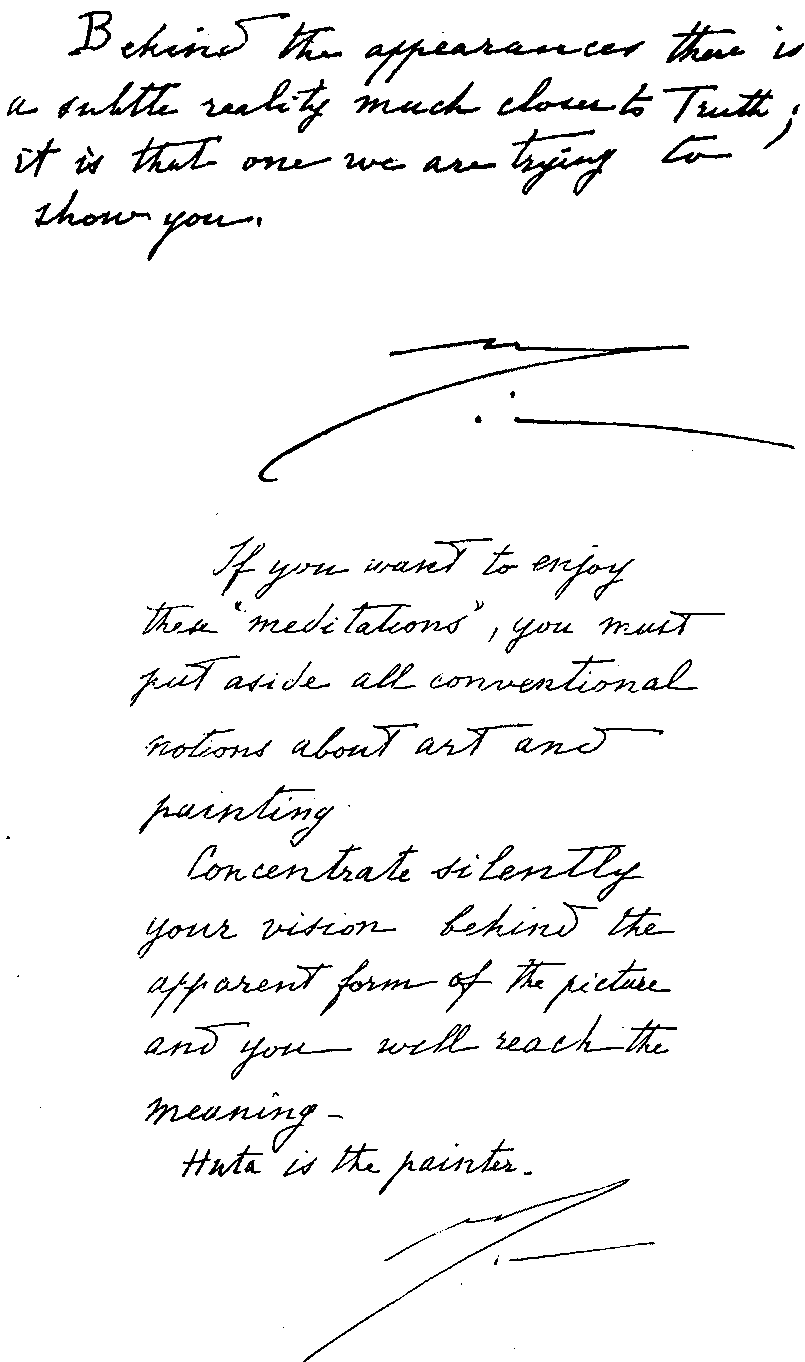 Behind the appearances there is
a subtle reality much closer to Truth;
it is that one we are trying to
show you.
If you want to enjoy
these "meditations", you must
put aside all conventional
notions about art and
painting.
Concentrate silently
your vision behind the
apparent form of the picture
and you will reach the
meaning -
Huta is the painter.